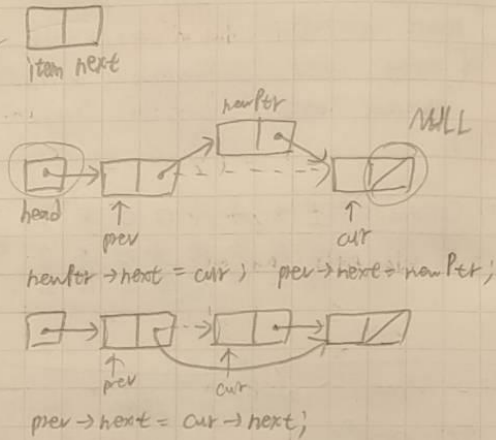 item next
newPtr
NULL
head
prev
cur
newPtr → next = cur; prev → next = newPtr;
prev
cur
prev → next = cur → next;